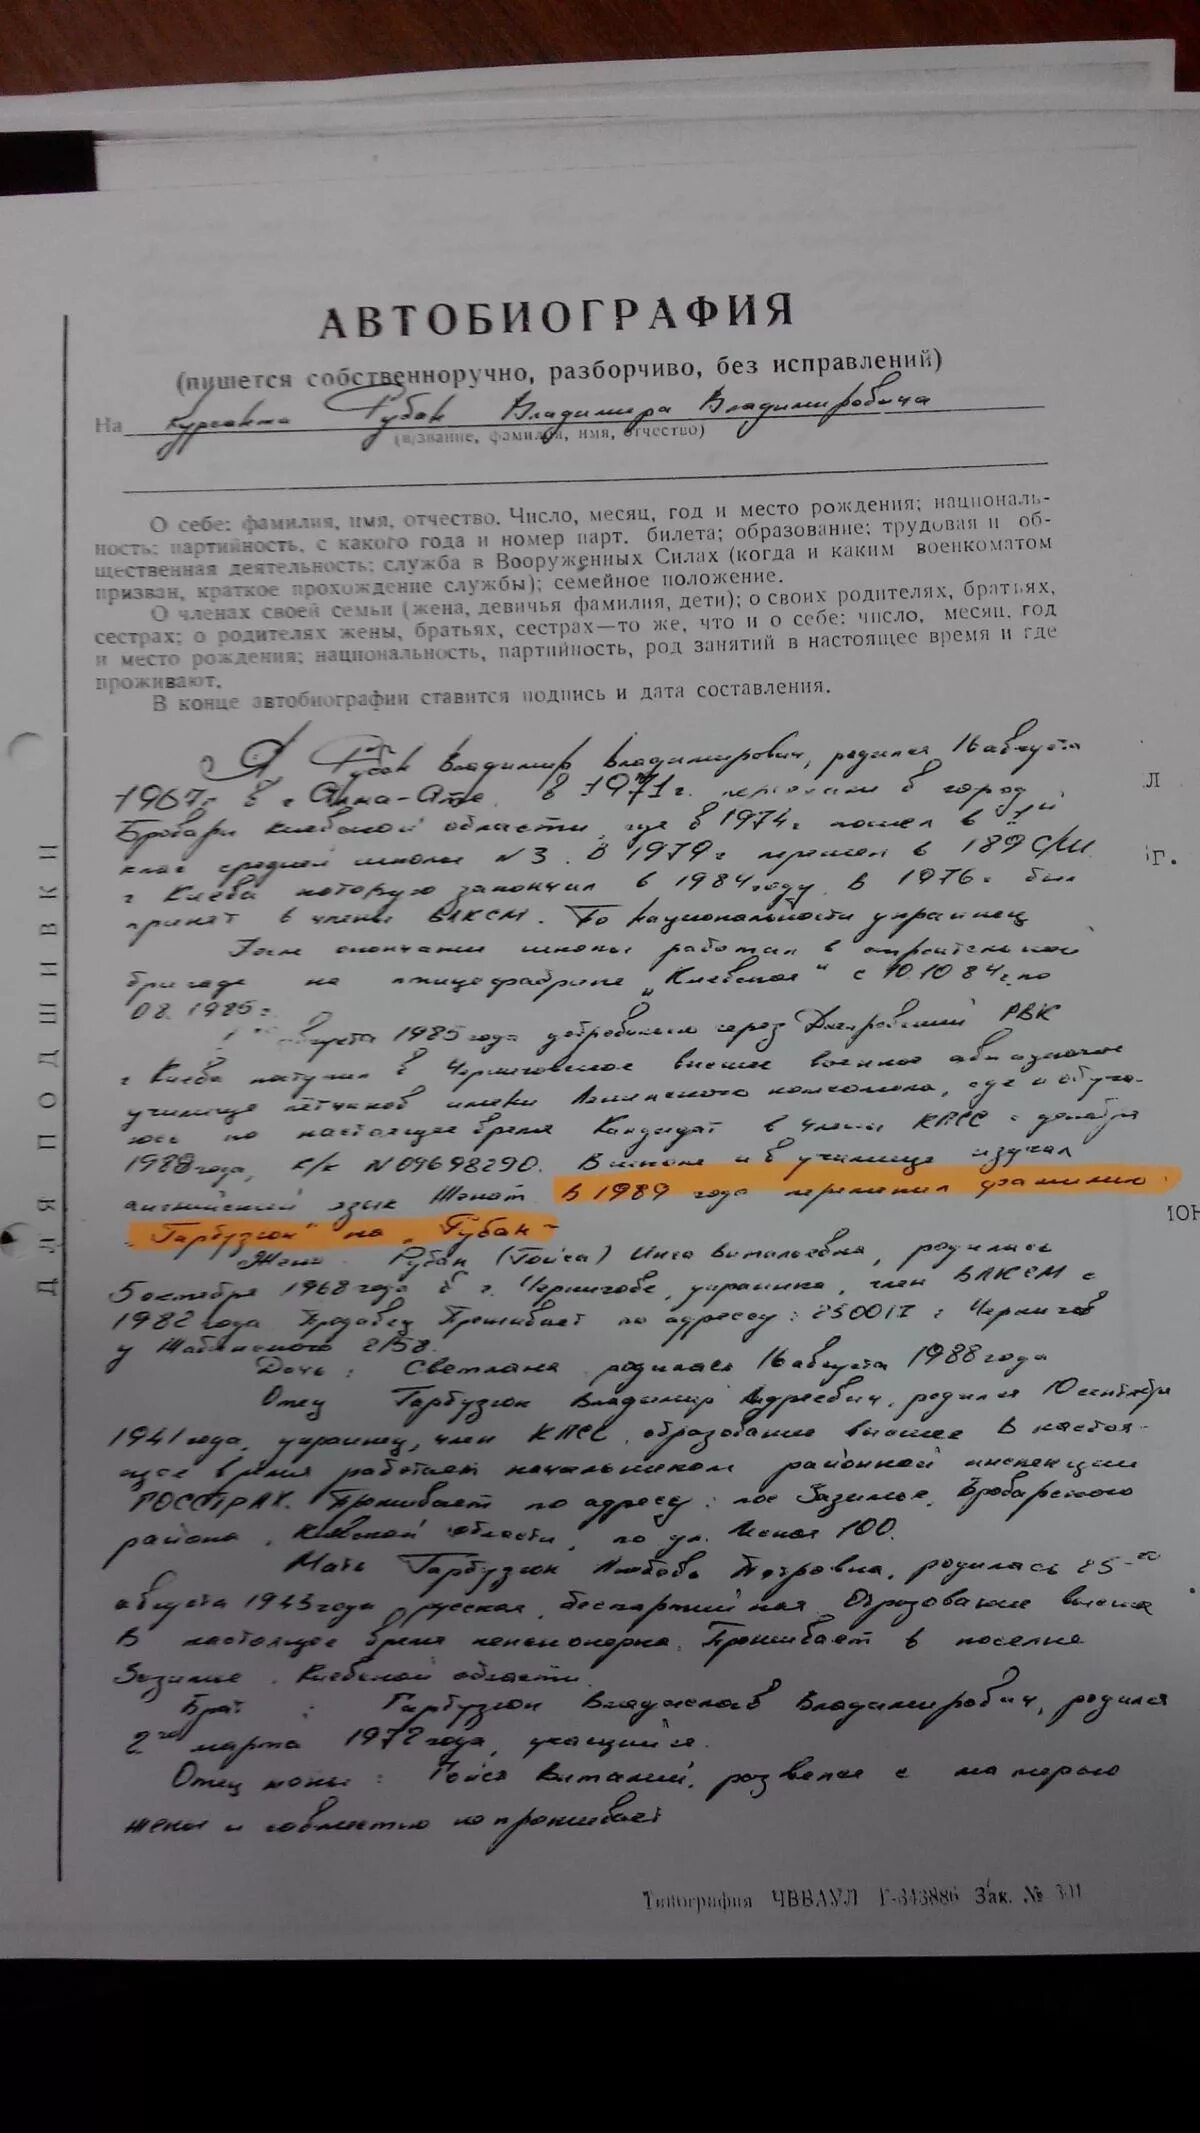 АВТОБИОГРАФИЯ
(пишется собственноручно, разборчиво, без исправлений)
На курсанта Рубан Владимира Владимировича
(звание, фамилия, имя, отчество)
О себе: фамилия, имя, отчество. Число, месяц, год и место рождения; националь-
ность; партийность, с какого года и номер парт. билета; образование; трудовая и об-
щественная деятельность; служба в Вооруженных Силах (когда и каким военкоматом
призван, краткое прохождение службы); семейное положение.
О членах своей семьи (жена, девичья фамилия, дети); о своих родителях, братьях,
сестрах; о родителях жены, братьях, сестрах—то же, что и о себе: число, месяц, год
и место рождения; национальность, партийность, род занятий в настоящее время и где
проживают.
В конце автобиографии ставится подпись и дата составления.
Я Рубан Владимир Владимирович, родился 16 августа
1967г. в г Алма-Ате. в 1971г. переехали в город
Бровари Киевской области, где в 1974г пошел в 1й
клас средней школы N3. В 1979г перешел в 189 СШ
г Киева которую закончил в 1984 году. В 1976г был
принят в члены ВЛКСМ. По национальности украинец
После окончания школы работал в строительной
бригаде на птицефабрике "Киевская" с 10.10 84 г. по
08. 1985г.
августа 1985 года добровольно через Днепровский РВК
г Киева поступил в Черниговское высшее военное авиационное
училище лётчиков имени Ленинского комсомола, где и обуча-
юсь по настоящее время Кандидат в члены КПСС с декабря
1988 года, к/к N09698290. В школе и в училище изучал
английский язык Женат. В 1989 году переменил фамилию
"Гарбузюк" на "Рубан"
Жена Рубан (Гойса) Инга Витальевна, родилась
5 октября 1968 года в г. Чернигове, украинка, член ВЛКСМ с
1982 года Продавец Проживает по адресу: 250017 г Чернигов
у 2/58.
Дочь: Светлана родилась 16 августа 1988 года
Отец Гарбузюк Владимир Андреевич, родился 10 сентября
1941 года, украинец, член КПСС, образование высшее В насто-
ящее время работает начальником районной инспекции
ГОССТРАХ. Проживает по адресу: пос Зазимье, Броварского
района, Киевской области, по ул. 100.
Мать Гарбузюк Любовь Петровна, родилась 25-го
августа 1943 года, русская, беспартийная Образование высшее
В настоящее время пенсионерка. Проживает в поселке
Зазимье, Киевской области.
Брат: Гарбузюк Владислав Владимирович, родился
2го марта 1972 года, учащийся.
Отец жены: Гойса Виталий, розведен с матерью
жены и совместно не проживает
Типография ЧВВАУЛ Г-343886 Зак. № 301
ДЛЯ ПОДШИВКИ
Л
г.
ИОН